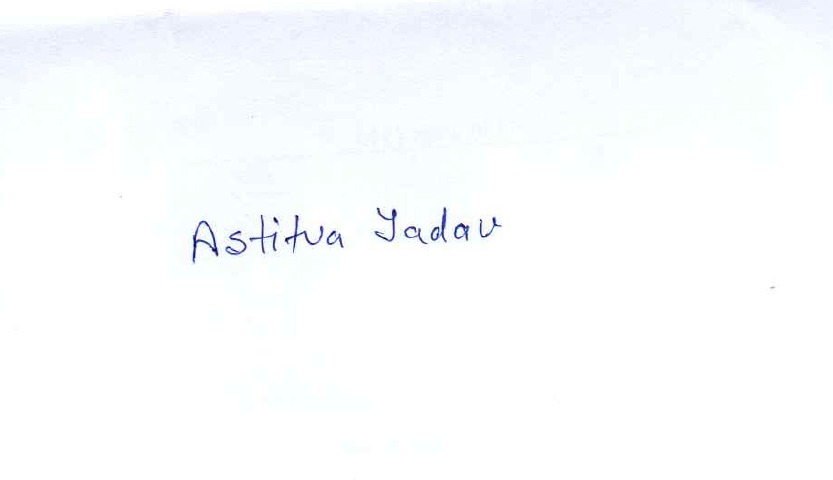 Astitva Yadav